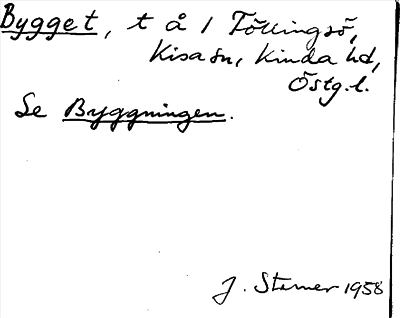 Bygget, t å 1 Föllingsö,
Kisa sn, Kinda hd,
Östg.l.
Se Byggningen.
J. Stamer 1958